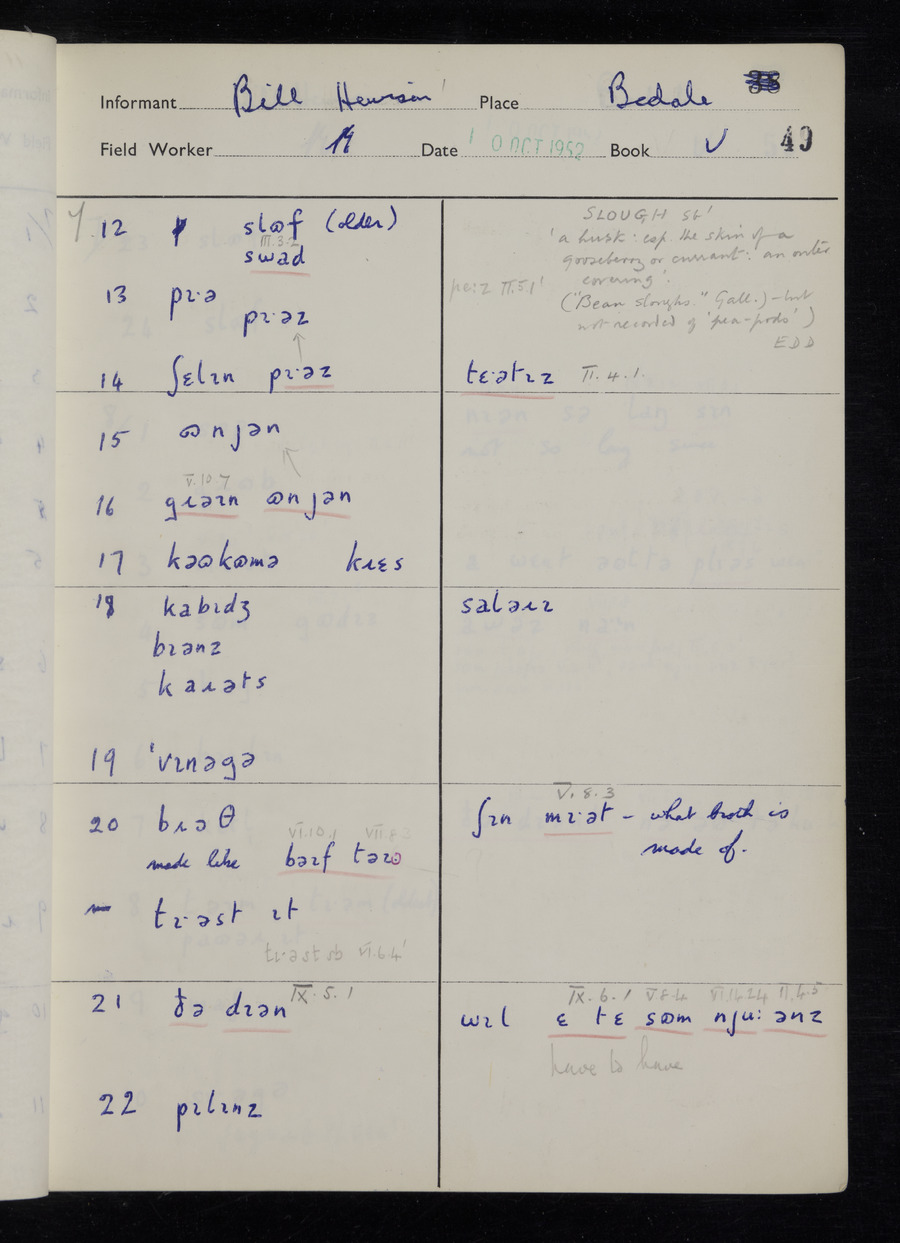 Informant Bill Place Bedale
Field Worker Date 10 OCT 1952 Book V 49
SLOUGH sb'
'a husk: esp. the skin of a
gooseberry or currant: an outer
covering'.
("Bean sloughs." Gall.) - but
not recorded of 'pea-pods')
EDD
12 slɷf (older)
III.3.2
swad
13 pɪ·ə
pɪ·əz
14 ʃɛlɪn pɪ·əz
tɛ·ətɪz II.4.1.
15 ɷnjən
V.10.7
16 gɹəɪn ɷnjən
17 kəɷkɷmə kɹɛs
18 kabɪdʒ
saləɪz
bɪənz
kaɹəts
19 'vɪnəgə
V.8.3
20 bɹəθ
ʃɪn mɪ·ət - what broth is
made of.
VI.10.1 VII.8.3
made like bəɪf təɪɷ
tɹ·əst ɪt
tɹ·əst sb VI.6.4'
21 ðə dɪən IX.5.1
IX.6.1 V.8.4 VI.14.24 II.4.5
wɪl ɛ tɛ sɷm nju: ənz
have to have
22 pɪlɪnz